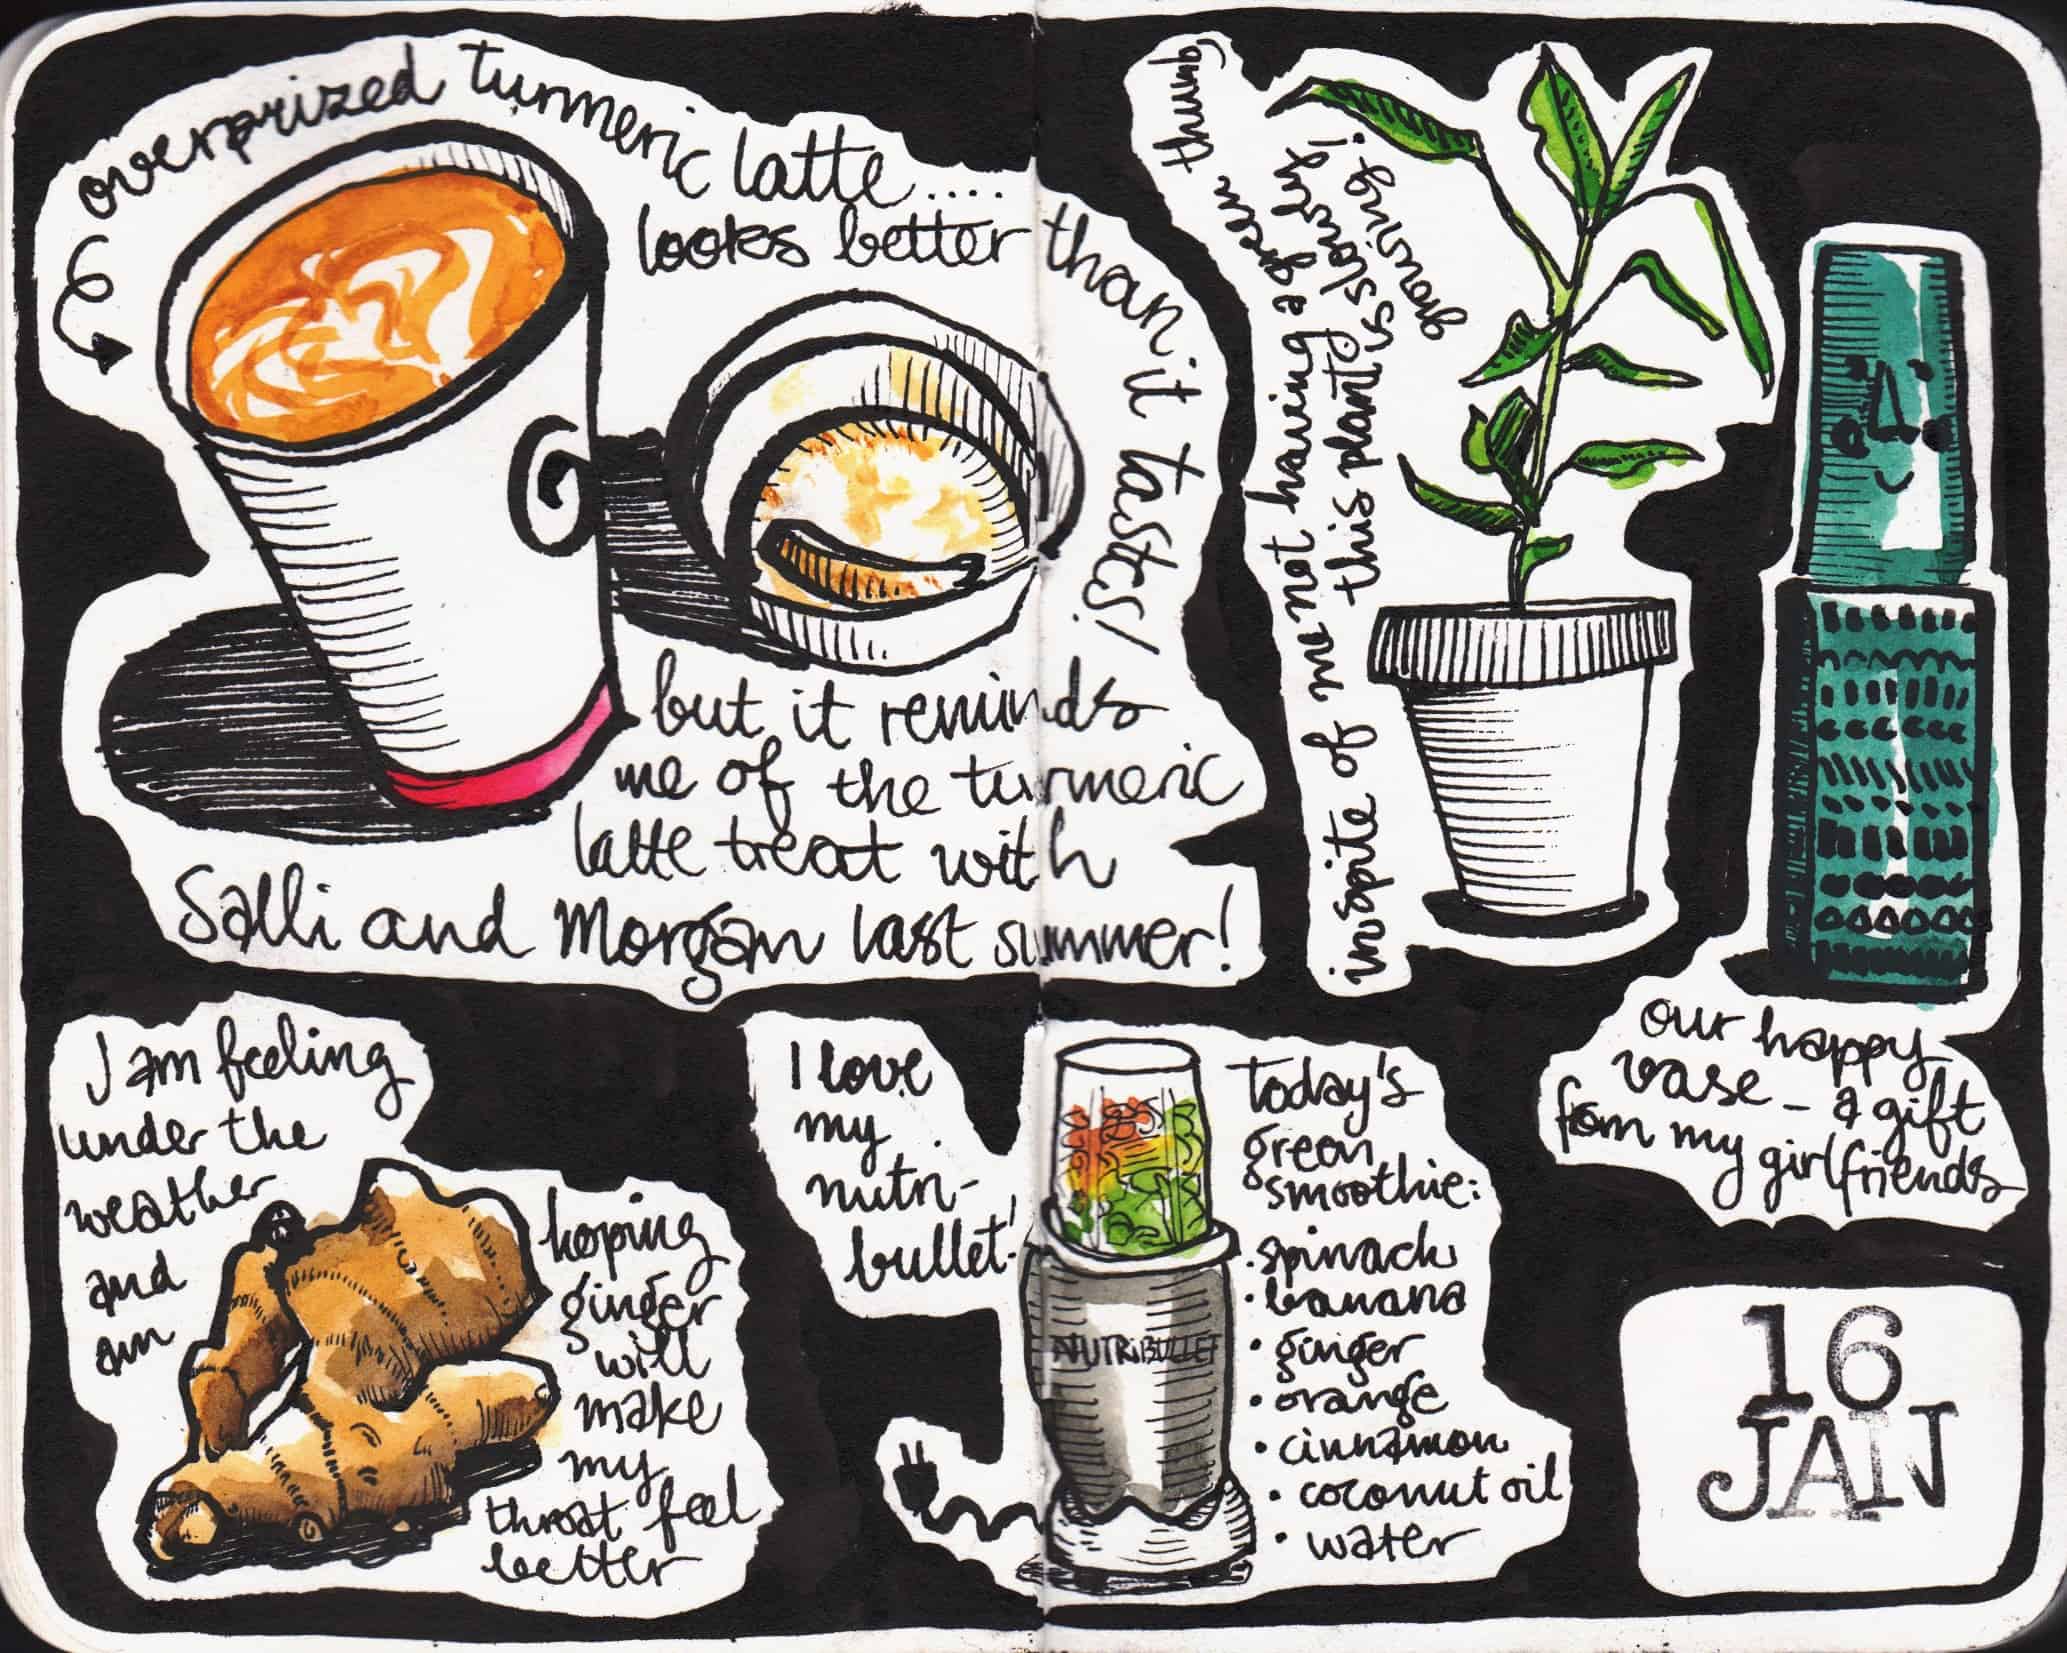 overprized turmeric latte....
looks better than it tastes!
but it reminds
me of the turmeric
latte treat with
Salli and Morgan last summer!
inspite of me not having a green thumb,
this plant is slowly!
growing!
our happy
vase - a gift
fom my girlfriends
I am feeling
under the
weather
and
am
hoping
ginger
will
make
my
throat feel
better
I love
my
nutri-
bullet!
NUTRiBULLET
Today's
green
smoothie:
• spinach
• banana
• ginger
• orange
• cinnamon
• coconut oil
• water
16
JAN